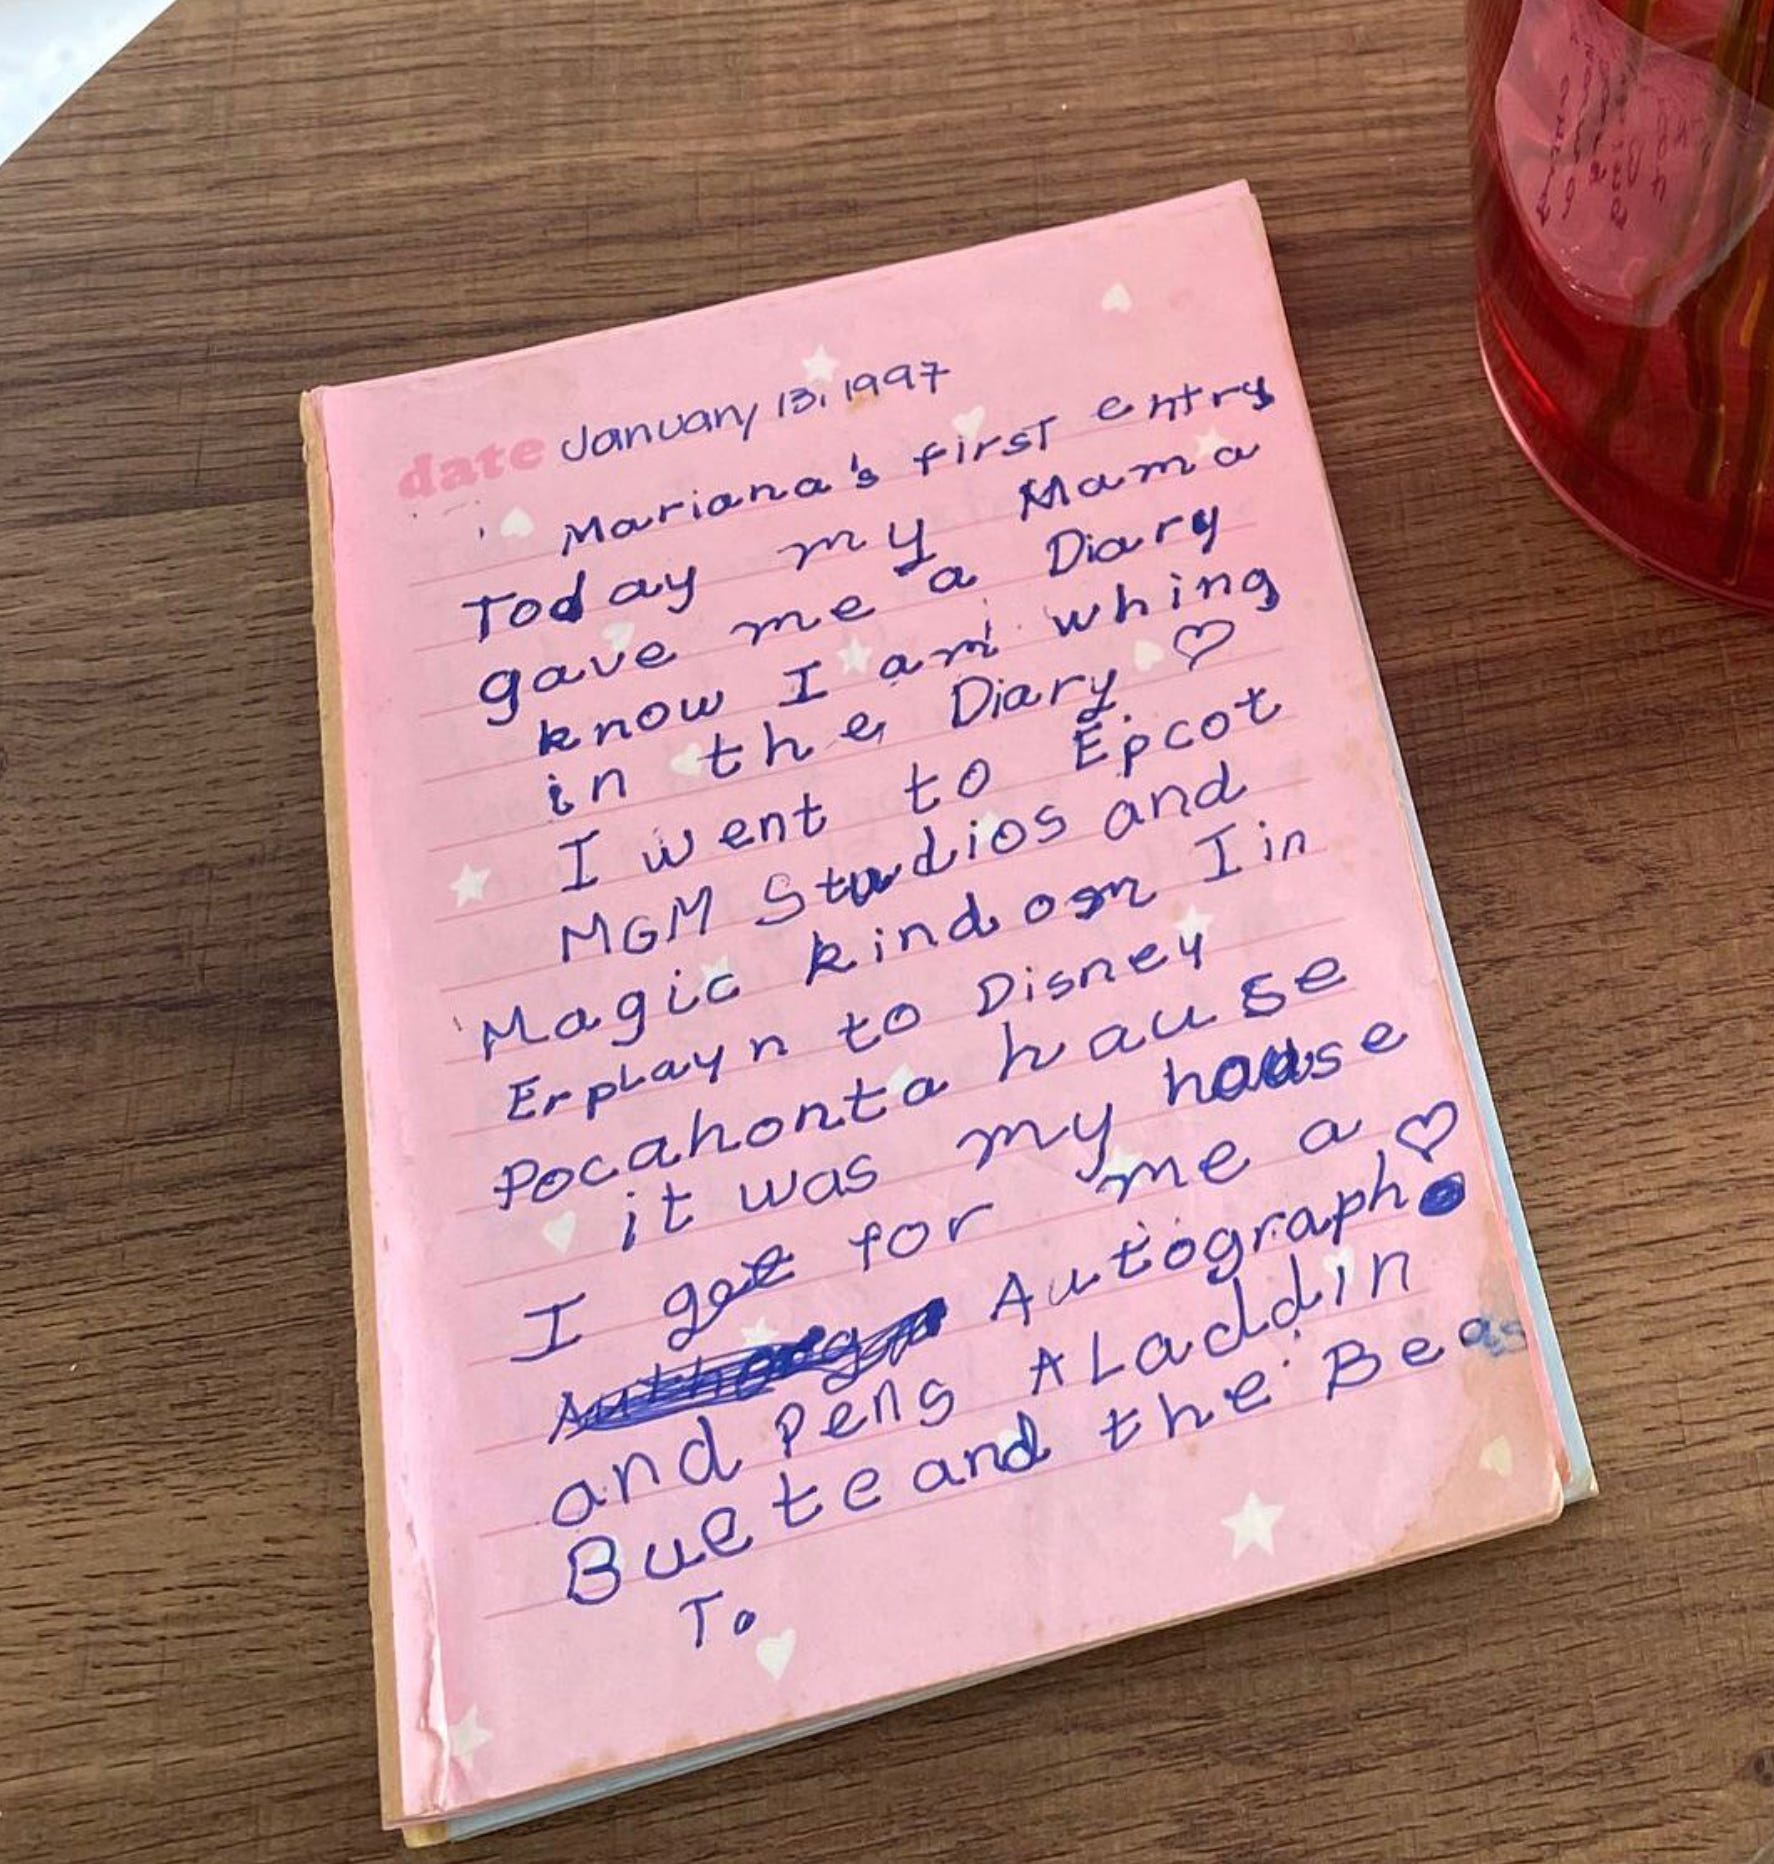 date January 13, 1997
Mariana's first entry
Today my Mama
gave me a Diary
know I am whing
in the Diary ♡
I went to Epcot
MGM Studios and
Magic kindom I in
Erplayn to Disney
Pocahonta hause
it was my house
I get for me a ♡
Autograph
and Pens ALaddin
Bueteand the Beas
To